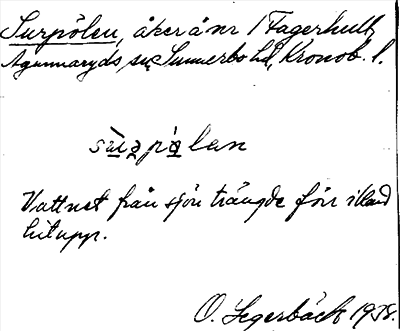 Surpölen, åker å nr 1 Fagerhult,
Agunnaryds sn, Sunnerbo hd, Kronob. l.
Vattnet från sjön trängde förr ibland
hitupp.
O. Segerbäck 1938.